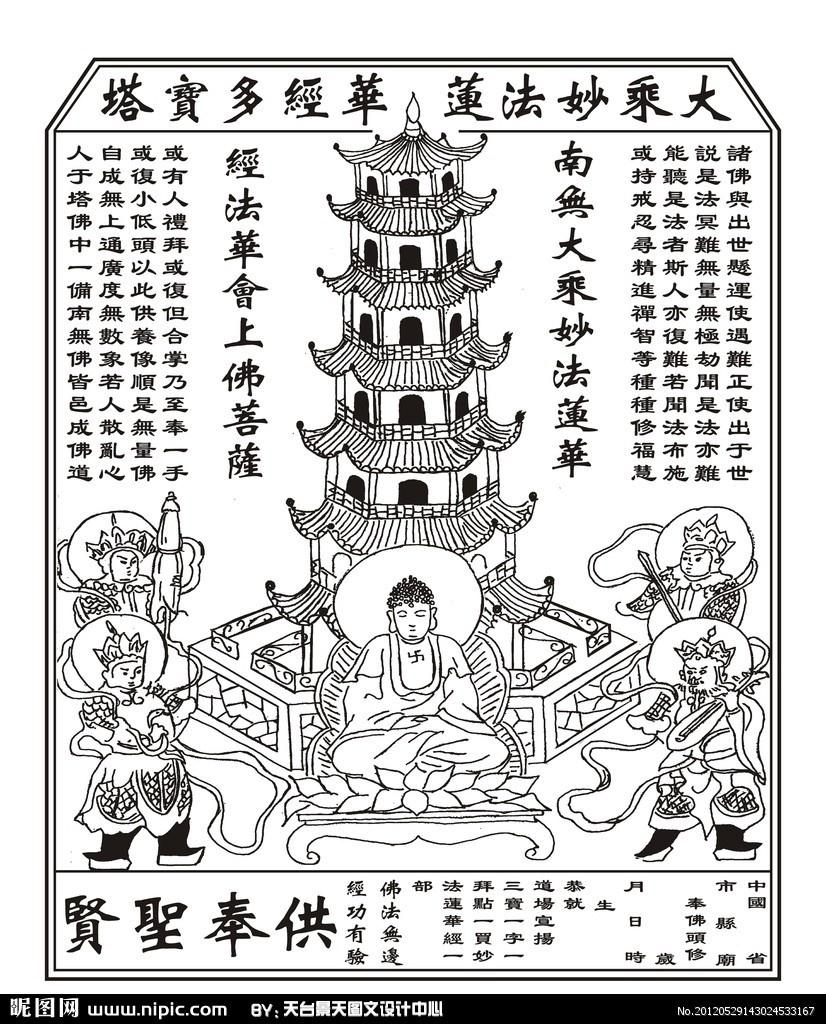 大乘妙法蓮華經多寶塔
諸佛與出世懸運使遇難正使出于世
說是法冥難無量無極劫聞是法亦難
能聽是法者斯人亦復難若聞法布施
或持戒忍尋精進禪智等種種修福慧
南無大乘妙法蓮華
經法華會上佛菩薩
或有人禮拜或復但合掌乃至奉一手
或復小低頭以此供養像順是無量佛
自成無上通廣度無數象若人散亂心
人于塔佛中一備南無佛皆邑成佛道
中國 省
市縣廟
奉佛頭修
歲
月日時
生
恭就
道場宣揚
三寶一字一
拜點一買妙
法蓮華經一
部
佛法無邊
經功有驗
供奉聖賢
昵图网 www.nipic.com BY: 天台景天图文设计中心 No.20120529143024533167